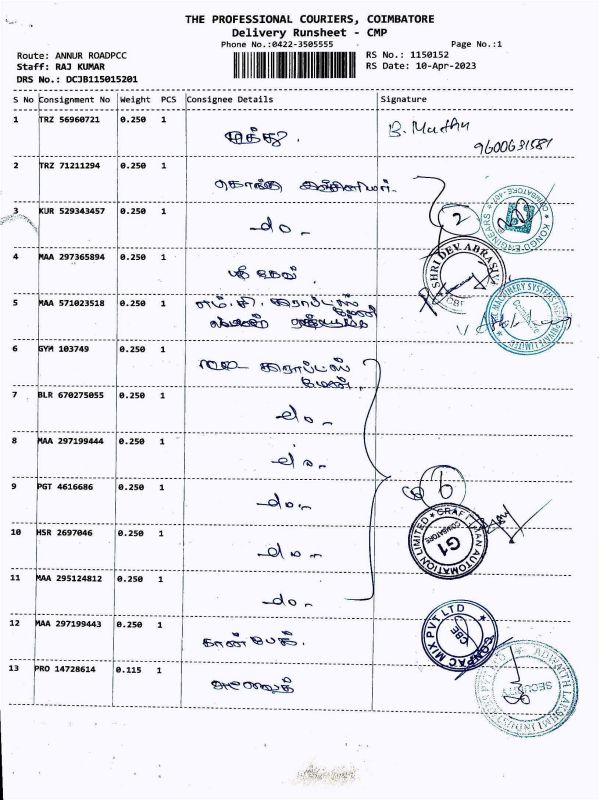 THE PROFESSIONAL COURIERS, COIMBATORE
Delivery Runsheet - CMP
Phone No.:0422-3505555 Page No.:1
Route: ANNUR ROADPCC RS No.: 1150152
Staff: RAJ KUMAR RS Date: 10-Apr-2023
DRS No.: DCJB115015201
S No Consignment No Weight PCS Consignee Details Signature
1 TRZ 56960721 0.250 1 முத்து. B. Muthu
9600631581
2 TRZ 71211294 0.250 1
3 KUR 529343457 0.250 1 -do- 2 KONGO ENGINEARS COIMBATORE
4 MAA 297365894 0.250 1 ஸ்ரீ தேவ் SHRI DEV ABRASIV CBE
5 MAA 571023518 0.250 1 எம்.சி. MACHINERY SYSTEMS PRIVATE LIMITED
6 GYM 103749 0.250 1 கிராப்ட்ஸ்
மேன்.
7 BLR 670275055 0.250 1 do-
8 MAA 297199444 0.250 1 do-
9 PGT 4616686 0.250 1 -do- 6
10 HSR 2697046 0.250 1 -do- CRAFTSMAN AUTOMATION LIMITED COIMBATORE G1
11 MAA 295124812 0.250 1 -do-
12 MAA 297199443 0.250 1 கான்பேக். CONPAC MIX PVT LTD CBE
13 PRO 14728614 0.115 1 LAKSHMI SECURITY